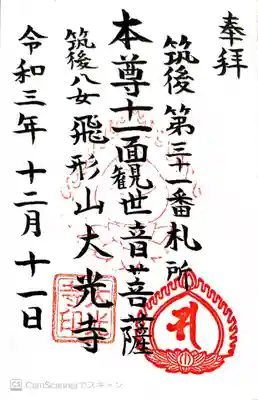 奉拝
筑後第三十一番札所
本尊十一面観世音菩薩
筑後八女 飛形山大光寺
令和三年 十二月 十一日
CS CamScannerでスキャン